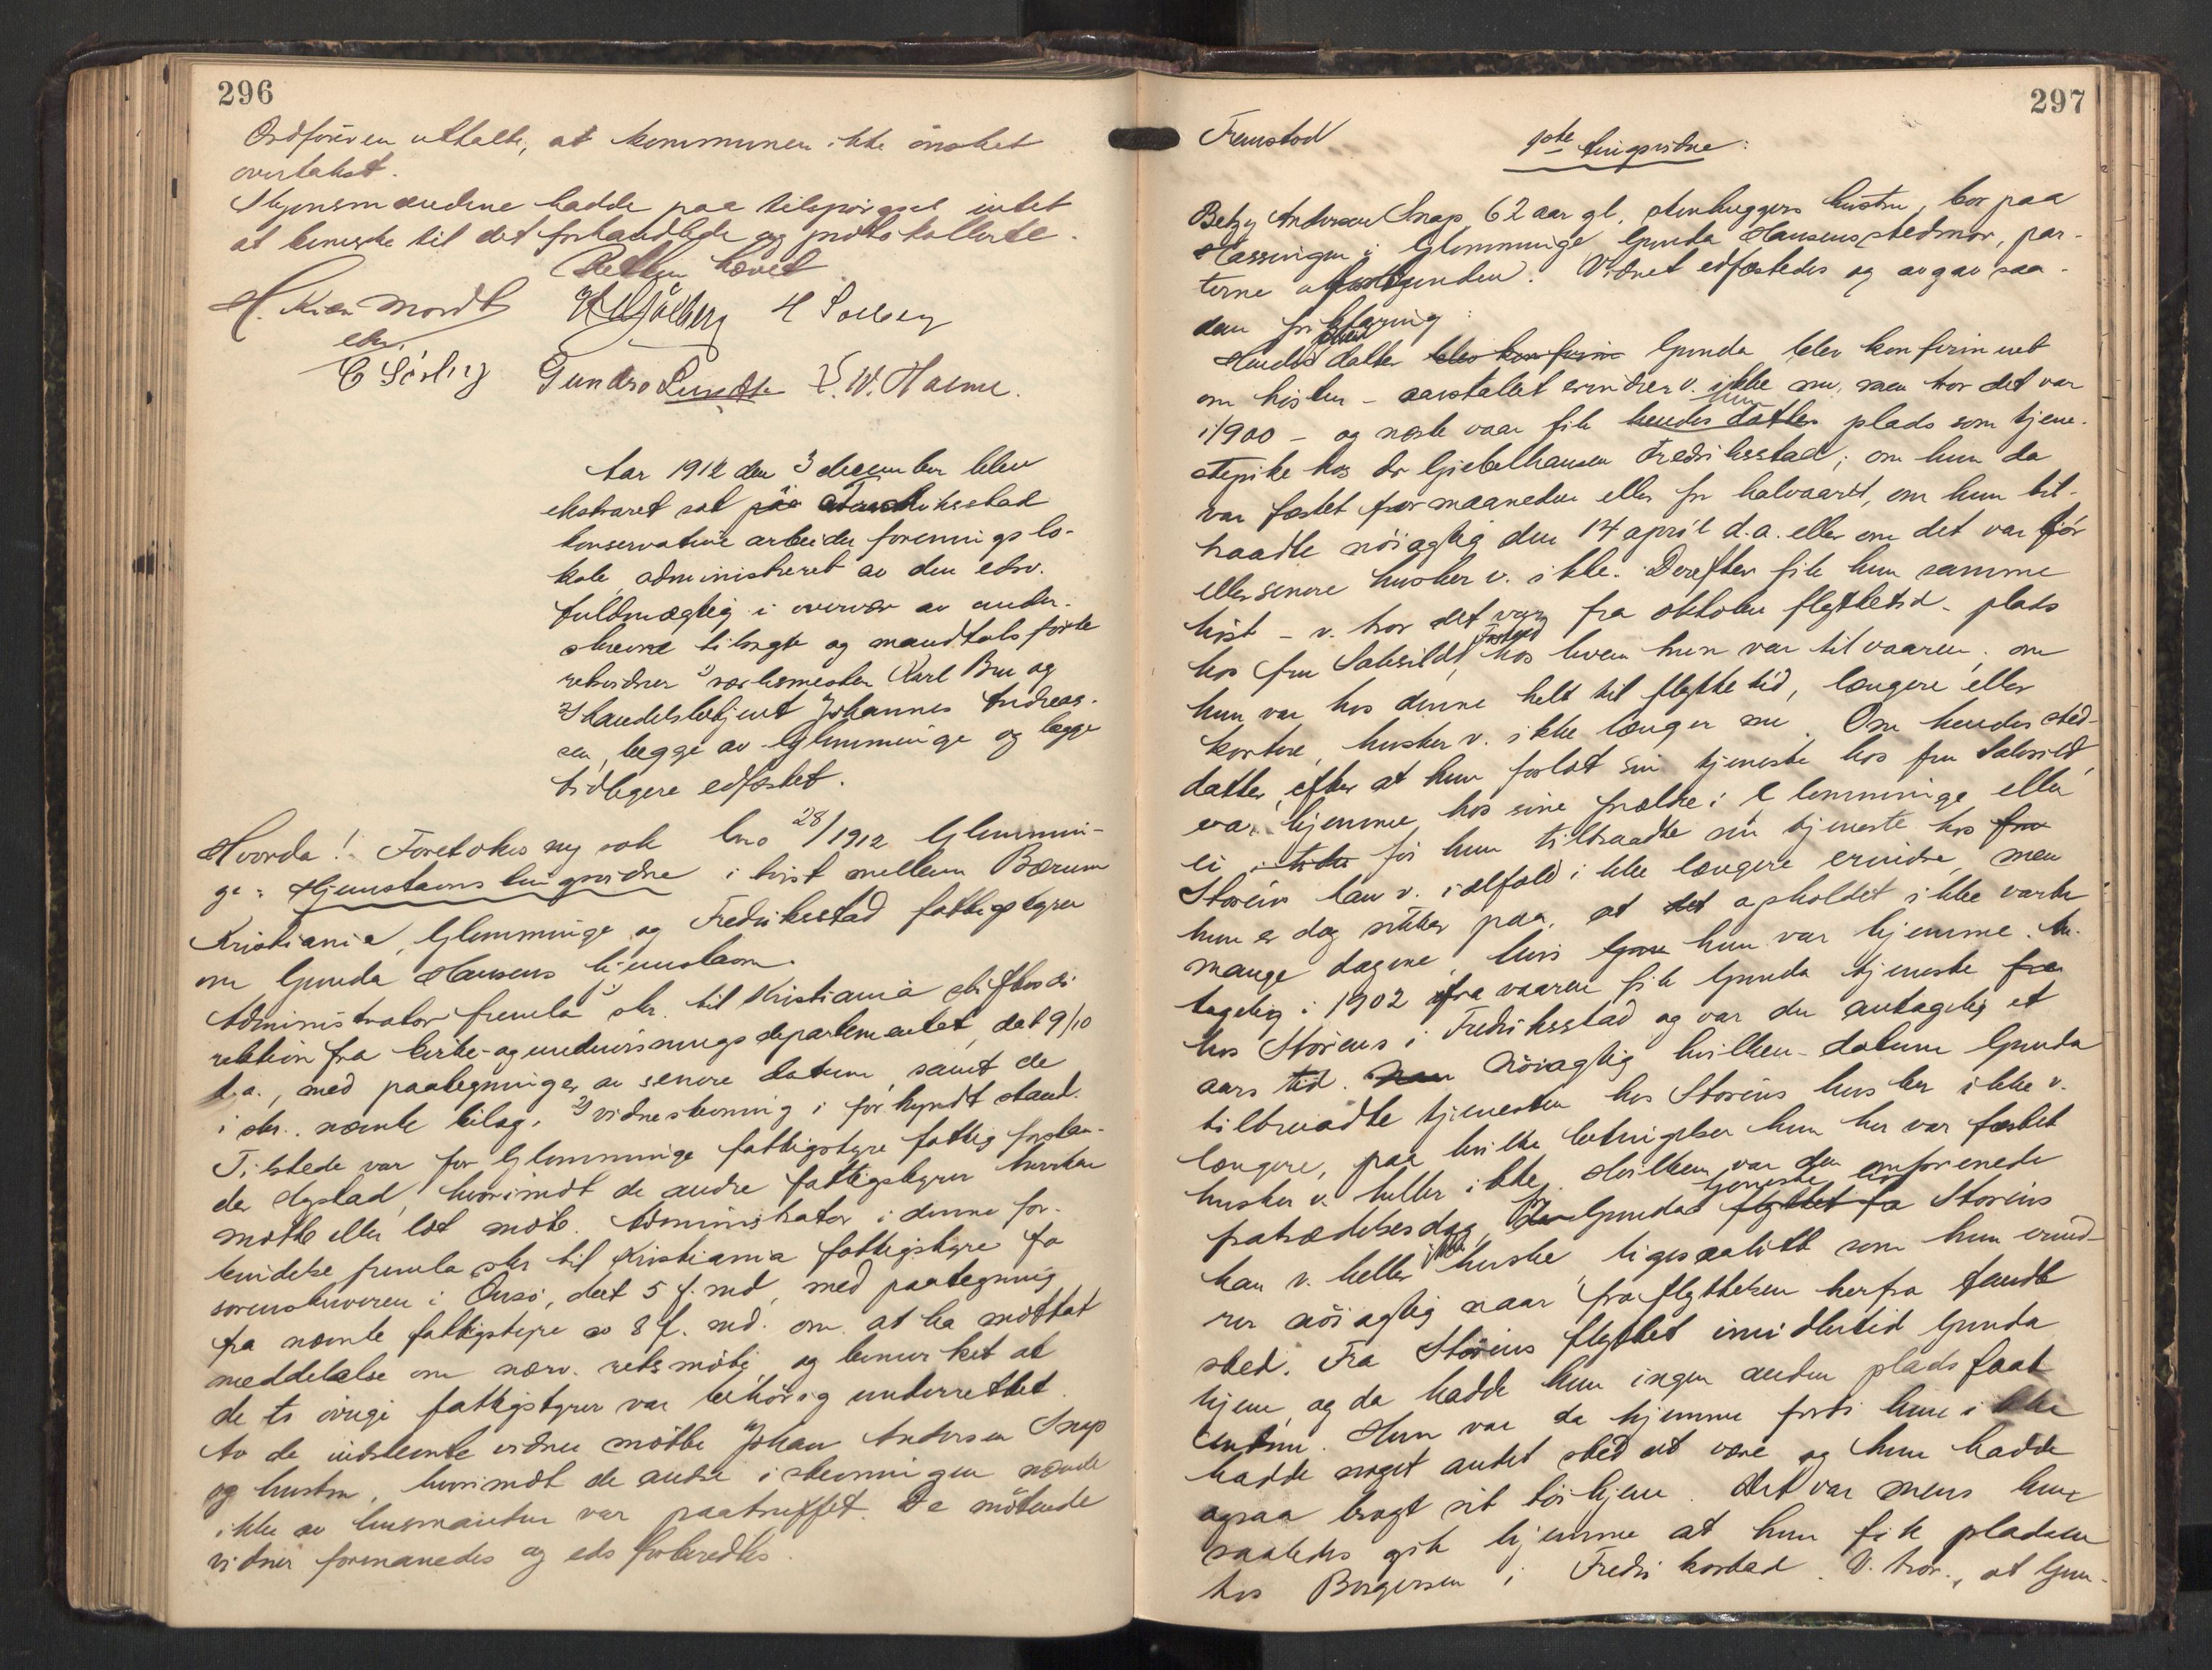 296
Ordföreren uttalte, at kommunen ikke önsket
overtakst.
Skjønsmændene hadde paa tilspörgsel intet
at bemerke til det forhandlede og protokollerte.
Retten hævet
H. Kiær Mordt H. Solberg
eds.
C Sörby Gunder Lunde W. Holme.
Aar 1912 den 3 december blev
ekstraret sat paa Fredriksstad
konservative arbeider forenings lo-
kale, administreret av den edsv.
fuldmægtig i overvær av under-
skrevne tilsagte og mandtalsførte
retsvidner 1) verksmester Karl Bru og
2) handelsbetjent Johannes Andreas-
sen, begge av Glemminge og begge
tidligere edfæstet.
Hvorda! Foretokes ny sak Lno 28/1912 Glemmin-
ge: Hjemstavns tingsvidne i tvist mellem Bærum
Kristiania, Glemminge og Fredriksstad fattigstyrer
om Gunda Hansens hjemstavn.
Administrator fremla 1) skr. til Kristiania stiftsdi-
rektion fra kirke- og undervisningsdepartementet, dat 9/10
d.a., med paategninger av senere datum, samt de
i skr. nævnte bilag, 2) vidnestevning i forkyndt stand.
Tilstede var for Glemminge fattigstyre fattigforstan-
der Systad, hvorimot de andre fattigstyrer hverken
mötte eller lot möte. Administrator i denne for-
bindelse fremla skr til Kristiania fattigstyre fra
sorenskriveren i Onsö, dat 5 f. md, med paategning
fra nævnte fattigstyre av 8 f. md. om at ha mottat
meddelelse om nærv. retsmöte, og bemerket at
de to övrige fattigstyrer var behörig underrettet.
Av de indstevnte vidner mötte Johan Andersen Snap
og hustru, hvorimot de andre i stevningen nævnte
ikke av husmanden var paatruffet. De mötende
vidner formanedes og eds forberedtes.
297
Fremstod
1ste tingsvidne:
Betzy Andersen Snap, 62 aar gl, stenhuggers hustru, bor paa
Hassingen i Glemminge Gunda Hansens stedmor, par-
terne uforbunden. Vidnet edfæstedes og avgav saa-
dan forklaring:
Hendes sted datter blev konfirm Gunda blev konfirmert
om hösten - aarstallet erindrer v. ikke nu, men tror det var
i 1900 - og næste vaar fik hun hendes datter plads som tjene-
stepike hos Dr Giebelhausen Fredriksstad; om hun da
var fæstet for maaneden eller for halvaaret, om hun til-
traadte nöiagtig den 14 april d.a. eller om det var för
eller senere husker v. ikke. Derefter fik hun samme
höst - v. tror det var fra oktober flyttetid - plads
hos fru Salvsild, Fr.stad hos hvem hun var til vaaren; om
hun var hos denne helt til flyttetid, længere eller
kortere, husker v. ikke længer nu. Om hendes sted-
datter, efter at hun forlot sin tjeneste hos fru Salvsild
var hjemme hos sine forældre i Glemminge eller
ei i tiden för hun tiltraadte sin tjeneste hos fru
Storéns kan v. ialfald ikke længere erindre, men
hun er dog sikker paa, at det opholdet ikke varte
mange dagene, hvis hun var hjemme. An-
tagelig i 1902 fra vaaren fik Gunda tjeneste fra
hos Störens i Fredriksstad og var der antagelig et
aars tid. Nöiagtig hvilken datum Gunda
tiltraadte tjenesten hos Storéns husker ikke v.
længere, paa hvilke betingelser hun her var fæstet
husker v. heller ikke. Hvilken var den omforenede
fratrædelsesdag i Gundas tjeneste hos flyttet fra Storéns
kan v. heller ikke huske, ligesaalitt som hun erind-
rer nöiagtig naar fraflyttelsen herfra fandt
sted. Fra Störéns flyttet imidlertid Gunda
hjem, og da hadde hun ingen anden plads faat
endnu. Hun var da hjemme fordi hun ikke
hadde noget andet sted at være og hun hadde
ogsaa bragt sit töi hjem. Det var mens hun
saaledes gik hjemme at hun fik pladsen
hos Borgersen i Fredriksstad. V. tror, at Gun-